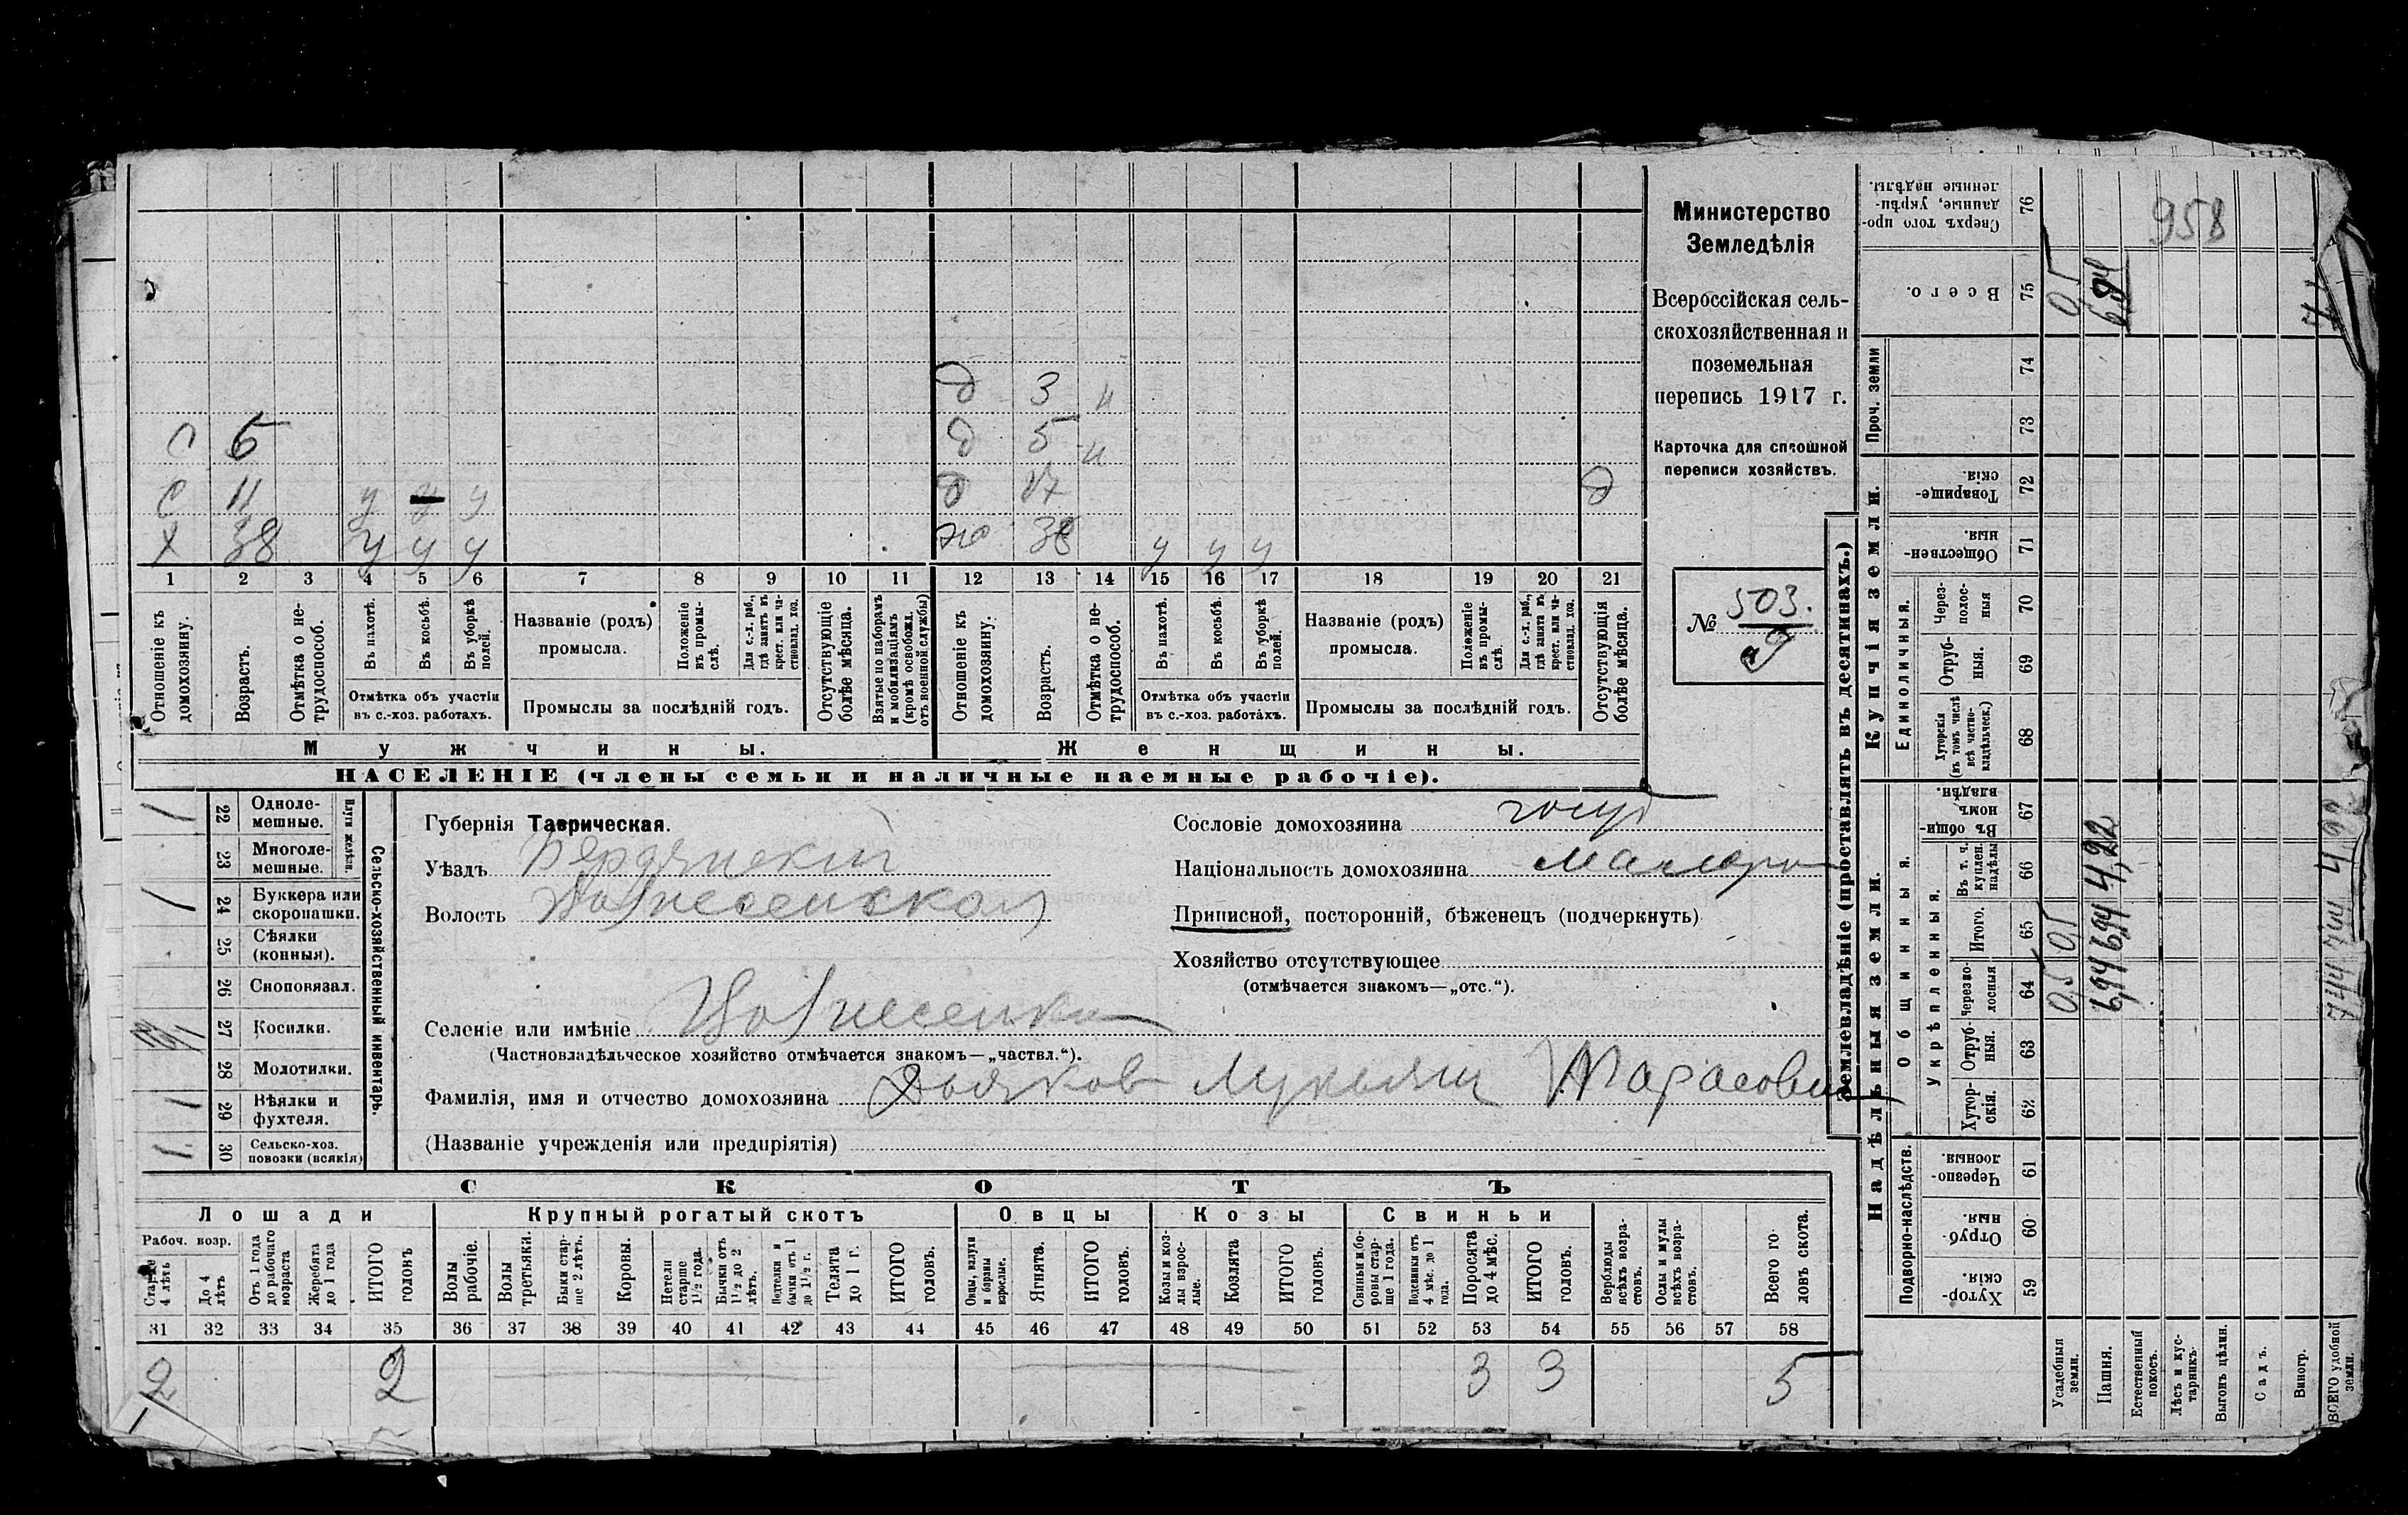 Министерство
Земледѣлія
Всероссійская сель-
скохозяйственная и
поземельная
перепись 1917 г.
Карточка для сплошной
переписи хозяйствъ.
№ 503.
958
д 3 н
с 5 д 5 н
с 11 у у у д 17 д
х 38 у у у ж 38 у у у
1 2 3 4 5 6 7 8 9 10 11 12 13 14 15 16 17 18 19 20 21
Отношеніе къ домохозяину.
Возрастъ.
Отмѣтка о не-трудоспособ.
Въ пахотѣ.
Въ косьбѣ.
Въ уборкѣ полей.
Отмѣтка объ участіи
въ с.-хоз. работахъ.
Названіе (родъ)
промысла.
Положеніе въ промы-слѣ.
Для с.-х. раб., гдѣ занятъ въ крест. или ча-стновлад. хоз.
Промыслы за послѣдній годъ.
Отсутствующіе болѣе мѣсяца.
Взятые по наборамъ и мобилизаціямъ (кромѣ освобожд. отъ военной службы)
Отношеніе къ домохозяину.
Возрастъ.
Отмѣтка о не-трудоспособ.
Въ пахотѣ.
Въ косьбѣ.
Въ уборкѣ полей.
Отмѣтка объ участіи
въ с.-хоз. работахъ.
Названіе (родъ)
промысла.
Положеніе въ промы-слѣ.
Для с.-х. раб., гдѣ занята въ крест. или ча-стновлад. хоз.
Промыслы за послѣдній годъ.
Отсутствующія болѣе мѣсяца.
Мужчины.
Женщины.
НАСЕЛЕНІЕ (члены семьи и наличные наемные рабочіе).
Сельско-хозяйственный инвентарь.
Плуги желѣзн.
1 22 Одноле-мешные.
23 Многоле-мешные.
1 24 Буккера или скоропашки.
25 Сѣялки (конныя).
26 Сноповязал.
27 Косилки.
28 Молотилки.
1 29 Вѣялки и фухтеля.
1 30 Сельско-хоз. повозки (всякія)
Губернія Таврическая.
Уѣздъ Бердянский
Волость Вознесенская
Селеніе или имѣніе Вознесенка
(Частновладѣльческое хозяйство отмѣчается знакомъ—„частвл.“).
Фамилія, имя и отчество домохозяина Дьяков Лукьян Тарасович
(Названіе учрежденія или предпріятія)
Сословіе домохозяина госуд
Національность домохозяина малоро
Приписной, посторонній, бѣженецъ (подчеркнуть)
Хозяйство отсутствующее
(отмѣчается знакомъ—„отс.“).
СКОТЪ
Лошади
Крупный рогатый скотъ
Овцы
Козы
Свиньи
Рабоч. возр.
Старше 4 лѣтъ
До 4 лѣтъ
Отъ 1 года до рабочаго возраста
Жеребята до 1 года
ИТОГО головъ
Волы рабочіе.
Волы третьяки.
Быки стар-ше 2 лѣтъ.
Коровы.
Нетели старше 1½ года.
Бычки отъ 1½ до 2 лѣтъ.
Подтелки и бычки отъ 1 до 1½ г.
Телята до 1 г.
ИТОГО головъ.
Овцы, валухи и бараны взрослые.
Ягнята.
ИТОГО головъ.
Козы и коз-лы взрос-лые.
Козлята
ИТОГО головъ.
Свиньи и бо-ровы стар-ше 1 года.
Подсвинки отъ 4 мѣс. до 1 года.
Поросята до 4 мѣс.
ИТОГО головъ.
Верблюды всѣхъ возра-стовъ.
Ослы и мулы всѣхъ возра-стовъ.
Всего го-ловъ скота.
31 32 33 34 35 36 37 38 39 40 41 42 43 44 45 46 47 48 49 50 51 52 53 54 55 56 57 58
2 2 3 3 5
Землевладѣніе (проставлять въ десятинахъ.)
Надѣльныя земли.
Купчія земли.
Проч. земли
Подворно-наслѣдств.
Общинныя.
Укрѣпленныя.
Единоличныя.
Хутор-скія. 59
Отруб-ныя. 60
Черезпо-лосныя. 61
Хутор-скія. 62
Отруб-ныя. 63
Черезпо-лосныя 64
Итого. 65
Въ т. ч. куплен. надѣлы 66
Въ общи-номъ владѣн. 67
Хуторскія (въ томъ числѣ всѣ частно-владѣльческ.) 68
Отруб-ныя. 69
Через-полос-ныя 70
Обществен-ныя 71
Товарище-скія. 72
73
74
Всего. 75
Сверхъ того про-данные, укрѣп-ленные надѣлы. 76
Усадебныя земли. 0,5 0,5 0,5
Пашня. 6,94 6,94 4,22 6,94
Естественный покосъ.
Лѣсъ и кус-тарникъ.
Выгонъ цѣлин.
Садъ.
Виногр.
ВСЕГО удобной земли. 7,44 7,44